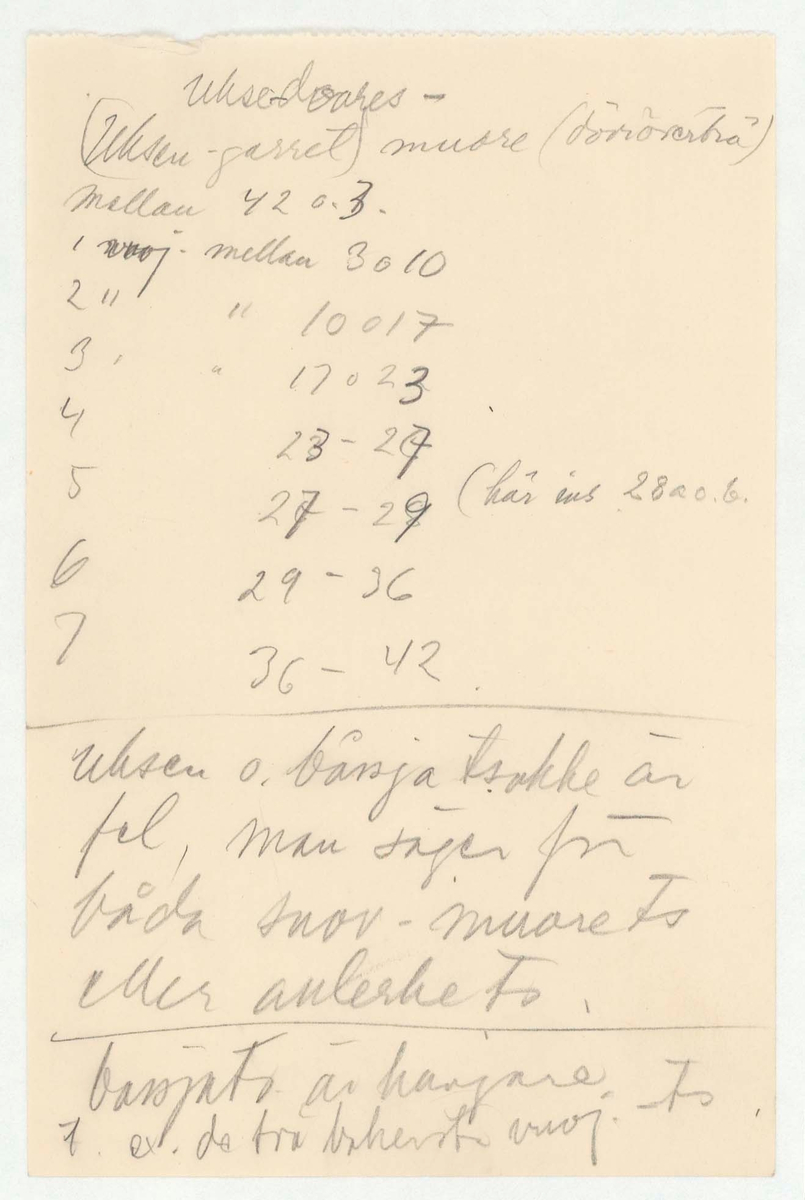 uksedoares -
(Uksen-garret) muore (dörröverträ)
mellan 42 o. 3.
1 vuoj. mellan 3 o 10
2 " " 10 o 17
3 " " 17 o 23
4 23 - 27
5 27 - 29 (här ins 28 a o. b.
6 29 - 36
7 36 - 42.
uksen o. båssja tsokke är
fel, man säger för
båda suov-muorets
eller aulerkets.
bossjats är hängare - ts
t. ex. de två bakersta vuoj.